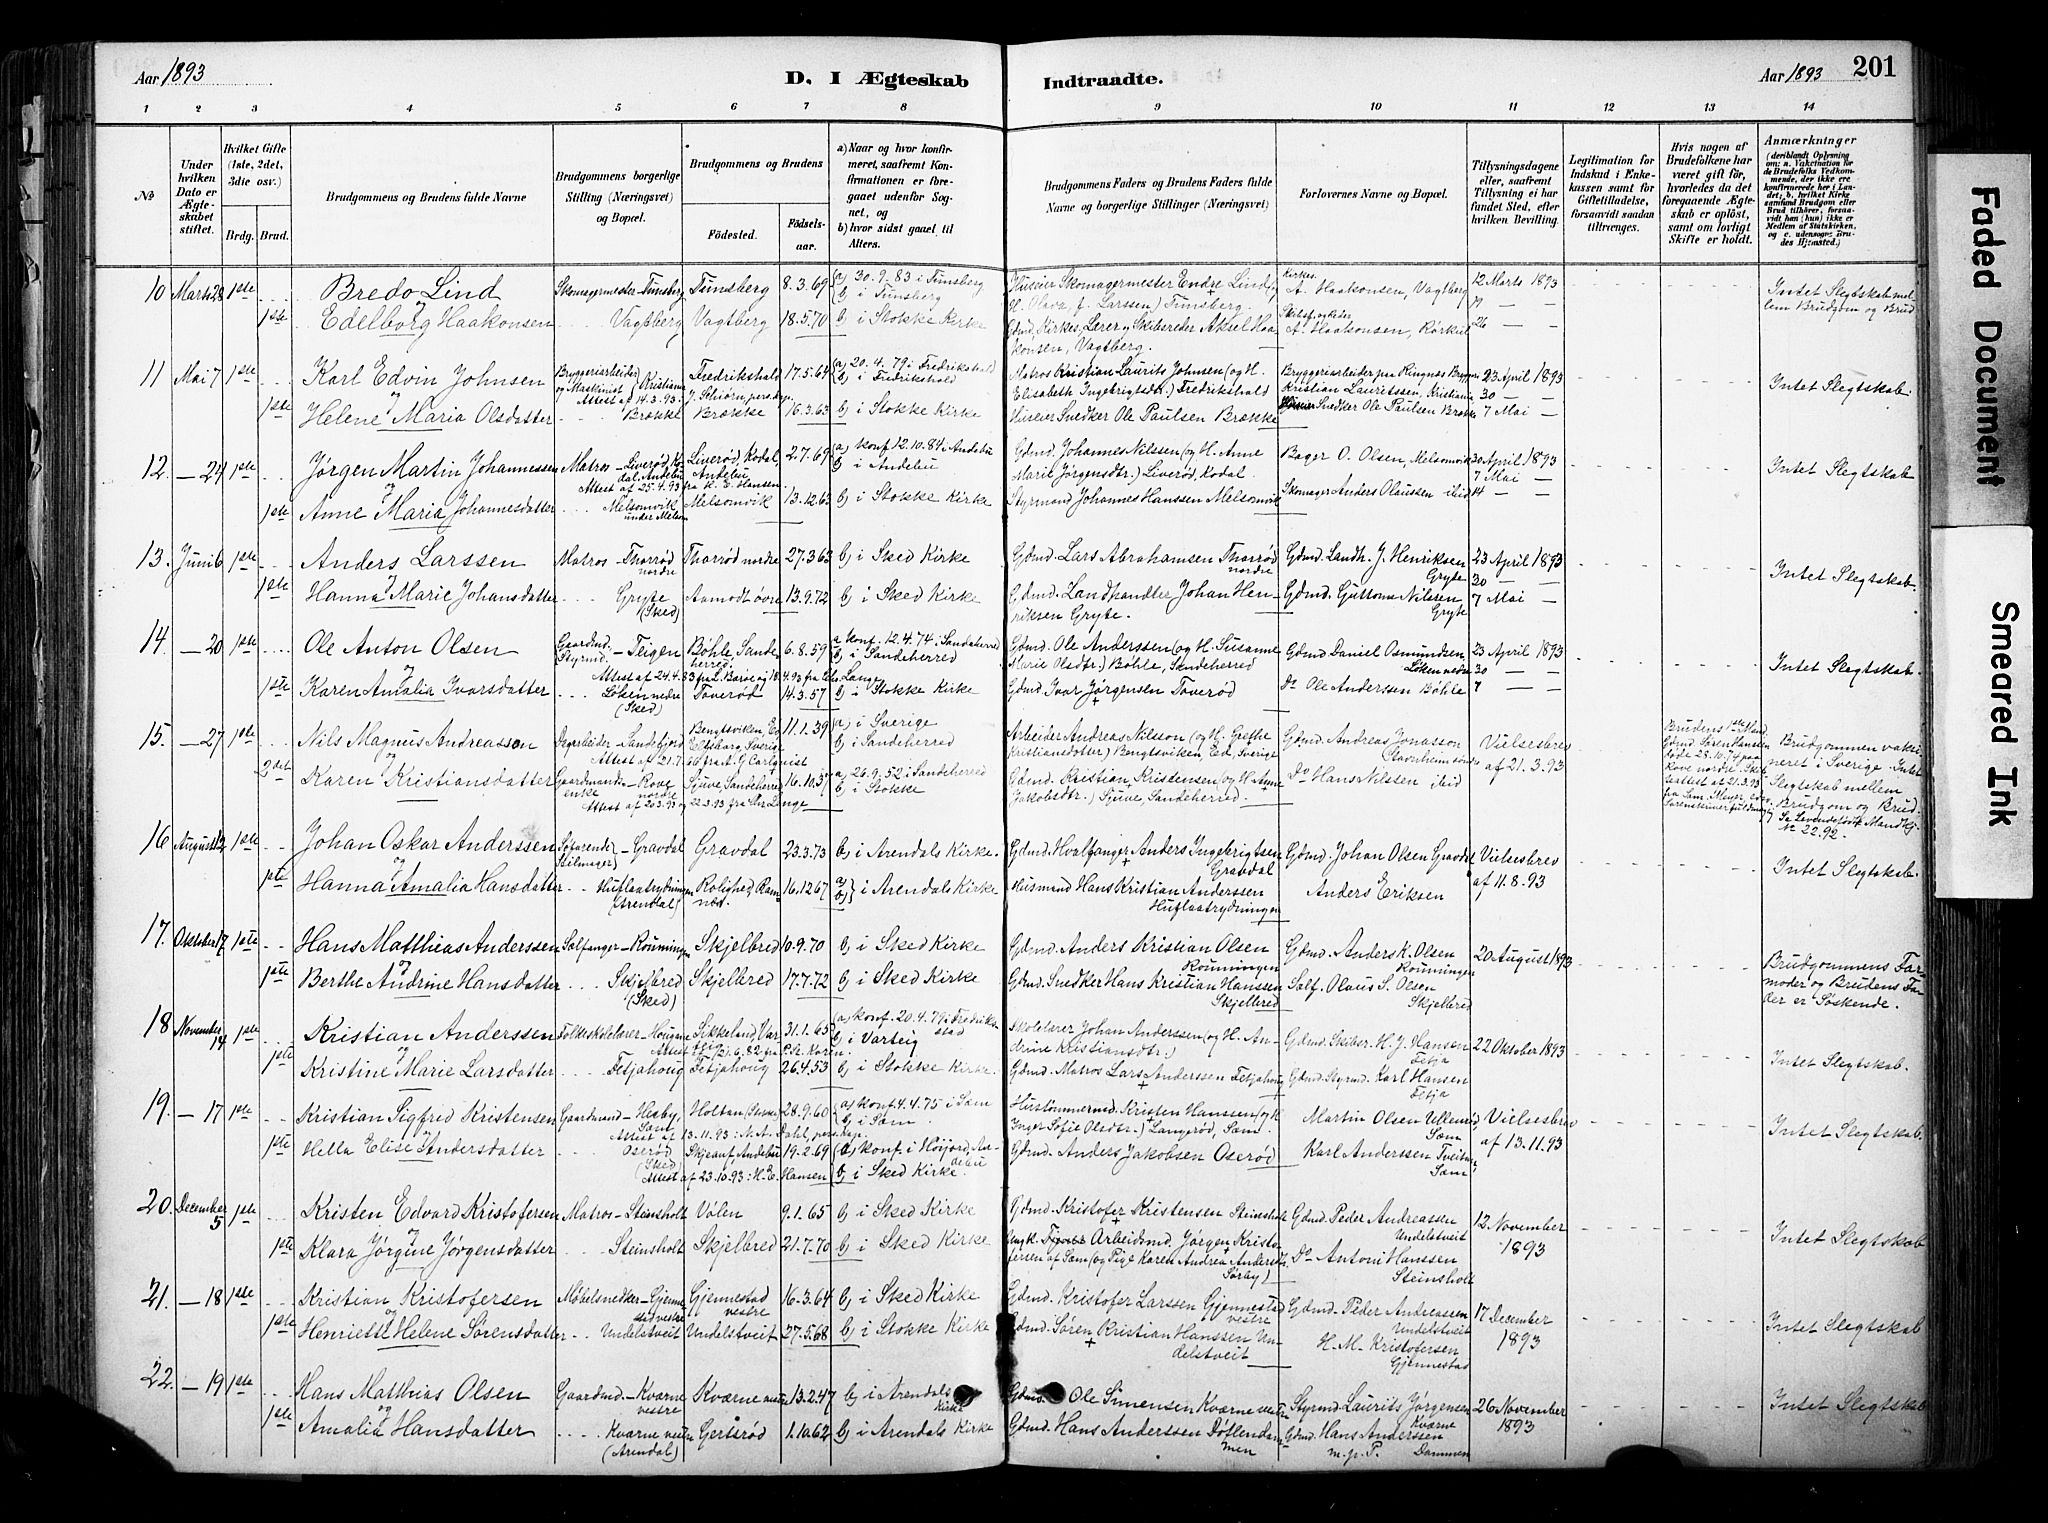 Aar 1893
D. I Ægteskab
Indtraadte.
Aar 1893 201
1 2 3 4 5 6 7 8 9 10 11 12 13 14
No
Under hvilken Dato er Ægteskabet stiftet.
Hvilket Gifte (1ste, 2det, 3die osv.)
Brdg. Brud.
Brudgommens og Brudens fulde Navne
Brudgommens borgerlige Stilling (Næringsvei) og Bopæl.
Brudgommens og Brudens
Fødested.
Fødselsaar.
a) Naar og hvor konfirmeret, saafremt Konfirmationen er foregaaet udenfor Sognet, og
b) hvor sidst gaaet til Alters.
Brudgommens Faders og Brudens Faders fulde Navne og borgerlige Stillinger (Næringsvei)
Forlovernes Navne og Bopæl.
Tillysningsdagene eller, saafremt Tillysning ei har fundet Sted, efter hvilken Bevilling.
Legitimation for Indskud i Enkekassen samt for Giftetilladelse, forsaavidt saadan tiltrænges.
Hvis nogen af Brudefolkene har været gift før, hvorledes da det foregaaende Ægteskab er opløst, samt om lovligt Skifte er holdt.
Anmærkninger
10 Marts 28 1ste Bredo Lind Skomagermester - Tunsberg Tunsberg 8.3.69 a) 30.9.83 i Tunsberg b) i Tunsberg
og
1ste Edelborg Haakonsen Vagtberg Vagtberg 18.5.70 b) i Stokke Kirke
Huseier Skomagermester Endre Lind, og H. Olava, f. Larssen) Tunsberg.
Gdmd. Kirkes. Lærer, Skibsreder Aksel Haakonsen, Vagtberg.
Kirkes. A. Haakonsen, Vagtberg
A. Haakonsen, Rørkul
12 Marts 1893
19 —
26 —
Intet Slegtskab mellem Brudgom og Brud
11 Mai 7 1ste Karl Edvin Johnsen Bryggeriarbeider og Maskinist (Kristiania Attest af 14.3.93. Fredrikshald 17.5.64 a) 20.4.79 i Fredrikshald b) i Fredrikshald
og
1ste Helene Maria Olsdatter Brække Brække 16.3.63 b) i Stokke Kirke
Matros Kristian Laurits Johnsen (og H. Elisabeth Ingebrigtsdtr.) Fredrikshald
Huseier Snedker Ole Paulsen Brække
Bryggeriarbeider paa Ringnes Bryggeri Kristian Lauritssen, Kristiania
Snedker Ole Paulsen Brække
23 April 1893
30 — —
7 Mai —
Intet Slegtskab
12. — 24 1ste Jørgen Martin Johannessen Matros - Liverød, Kodal, Andebu Attest af 25.4.93 fra H. E. Hansen Liverød, Kodal, Andebu 2.7.69 a) konf. 12.10.84 i Andebu b) i Andebu
og
1ste Anne Maria Johannesdatter Melsomvik under Melsom Melsomvik 13.12.63 b) i Stokke Kirke
Gdmd. Johannes Nilssen (og H. Anne Marie Jørgensdtr.) Liverød, Kodal.
Styrmand Johannes Hanssen Melsomvik
Bager O. Olsen, Melsomvik
Skomager Anders Olaussen ibid
30 April 1893
7 Mai —
14 — —
Intet Slegtskab
13. Juni 6 1ste Anders Larssen Matros - Thorrød nordre Thorrød nordre 27.3.63 b) i Sked Kirke
og
1ste Hanna Marie Johansdatter Gryte (Sked) Aamodt øvre 13.9.72 b) i Sked Kirke
Gdmd. Lars Abrahamsen Thorrød nordre
Gdmd. Landhandler Johan Henriksen Gryte.
Gdmd. Landh. J. Henriksen Gryte
Gdmd. Guttorm Nilssen Gryte
23 April 1893
30 — —
7 Mai —
Intet Slegtskab
14. — 20 1ste Ole Anton Olsen Gaardmd. Styrmd. - Teigen Bøhle Sandeherred 6.8.59 a konf. 12.4.74 i Sandeherred b) i Sandeherred
og
1ste Karen Amalia Ivarsdatter Løken nedre (Sked) Toverød 14.3.57 b) i Stokke Kirke
Gdmd. Ole Anderssen (og H. Susanne Marie Olsdtr.) Bøhle, Sandeherred
Gdmd. Ivar Jørgensen Toverød
Gdmd. Daniel Osmundsen Løken nedre
Do Ole Anderssen Bøhle
23 April 1893
30 —
7 — —
Intet Slegtskab
15. — 27 1ste Nils Magnus Andreasson Dagarbeider - Sandefjord Bengtsviken, Ed Elfsborg, Sverige 11.1.39 a) i Sverige b) i Sandeherred
og
2det Karen Kristiansdatter Gaardmandsenke - Rove nordre Sjuve, Sandeherred 16.10.37 a) 26.9.52 i Sandeherred b) i Stokke
Attest af 20.3.93 og 22.3.93 fra Chr. Lange
Arbeider Andreas Nilsson (og H. Grethe Kristiansdotter) Bengtsviken Ed, Sverige
Gdmd. Kristian Kristensen (og H. Anne Jakobsdtr.) Sjuve, Sandeherred.
Gdmd. Andreas Jonasson
Do Hans Nilssen ibid
Vielsesbrev af 21.3.93
Brudens 1ste Mand Gdmd. Søren Hanssen døde 28.10.79 paa Rove nordre.
Brudgommen vaksineret i Sverige. Intet Slegtskab mellem Brudgom og Brud.
No 22.92.
16 August 12 1ste Johan Oskar Anderssen Søfarende (Seilmager) - Gravdal Gravdal 23.3.73 b) i Arendals Kirke.
og
1ste Hanna Amalia Hansdatter Huflaatrydningen (Arendal) Rolighed, Ramnæs. 16.12.67 a) b) i Arendals Kirke
Gdmd. Hvalfanger Anders Ingebrigtsen Gravdal
Husmand Hans Kristian Anderssen Huflaatrydningen
Gdmd. Johan Olsen Gravdal
Anders Eriksen
Vielsesbrev af 11.8.93
Intet Slegtskab.
17. Oktober 17 1ste Hans Matthias Anderssen Sælfanger - Rønningen Skjelbred 10.9.70 b) i Sked Kirke
og
1ste Berthe Andrine Hansdatter Skjelbred (Sked) Skjelbred 17.7.72 b) i Sked Kirke
Gdmd. Anders Kristian Olsen Rønningen
Gdmd. Snedker Hans Kristian Hanssen Skjelbred
Gdmd. Anders K. Olsen Rønningen
Sælf. Olaus S. Olsen Skjelbred
20 August 1893
Brudgommens Farmoder og Brudens Fader er Søskende.
18 November 14 1ste Kristian Anderssen Folkeskolelærer - Hougane Sikkeland, Varteig 31.1.65 a) konf. 20.4.79 i Fredrikstad b) i Varteig
og
1ste Kristine Marie Larsdatter Fetjahoug Fetjahoug 26.4.53 b) i Stokke Kirke.
Skolelærer Johan Anderssen (og H. Andrine Kristiansdtr.)
Gdmd. Matros Lars Anderssen Fetjahoug
Gdmd. Skibsr. H. J. Hansen Fetja
Gdmd. Styrmd. Karl Hansen Fetja
22 Oktober 1893
Intet Slegtskab.
19. — 17 1ste Kristian Sigfred Kristensen Gaardmand - Hesby, Sæm, Holtan (Stokke 28.9.60 a) konf. 4.4.75 i Sæm b) i Sæm
og
1ste Hella Elise Andersdatter Oserød (Sked) Skjeau f. Andebu 19.2.69 a) konf. i Høijord, Andebu b) i Sked Kirke
Attest af 23.10.93: H. E. Hansen
Hustømmermd. Kristen Hanssen (og H. Inger Sofie Olsdtr.) Langrød, Sæm.
Gdmd. Anders Jakobsen Oserød
Martin Olsen Ullenrød Sæm
Karl Anderssen Tveitan, Sæm.
Vielsesbrev af 13.11.93
Intet Slegtskab.
20. December 5 1ste Kristen Edvard Kristofersen Matros - Steinsholt Valen 9.1.65 b) i Sked Kirke
og
1ste Klara Jørgine Jørgensdatter Steinsholt Skjelbred 21.7.70 b) i Sked Kirke
Gdmd. Kristofer Kristensen Steinsholt
Ungk. Arbeidsmd. Jørgen Kristofersen af Sæm (og Pige Karen Andrea Andersdtr. Sørby)
Gdmd. Peder Andreassen Undelstveit
Do Antoni Hanssen Steinsholt
12 November 1893
Intet Slegtskab
21. — 18 1ste Kristian Kristofersen Møbelsnedker - Gjennestad vestre Gjennestad vestre 16.3.64 b) i Sked Kirke
og
1ste Henriette Helene Sørensdatter Undelstveit Undelstveit 27.5.68 b) i Stokke Kirke
Gdmd. Kristofer Larssen Gjennestad vestre
Gdmd. Søren Kristian Hanssen Undelstveit
Gdmd. Peder Andreassen Undelstveit
H. M. Kristofersen Gjennestad
17 December 1893
Intet Slegtskab
22. — 19 1ste Hans Matthias Olsen Gaardmd. - Kværne vestre Kværne vestre 13.2.47 b) i Arendals Kirke
og
1ste Amalia Hansdatter Kværne vestre (Arendal) Gertsrød 1.10.62 b) i Arendals Kirke
Gdmd. Ole Simensen Kværne vestre
Gdmd. Hans Anderssen Døvlendammen
Styrmd. Laurits Jørgensen Kværne
Gdmd. Hans Anderssen Dammen
m.p.P.
26 November 1893
Intet Slegtskab
Faded Document
Smeared Ink